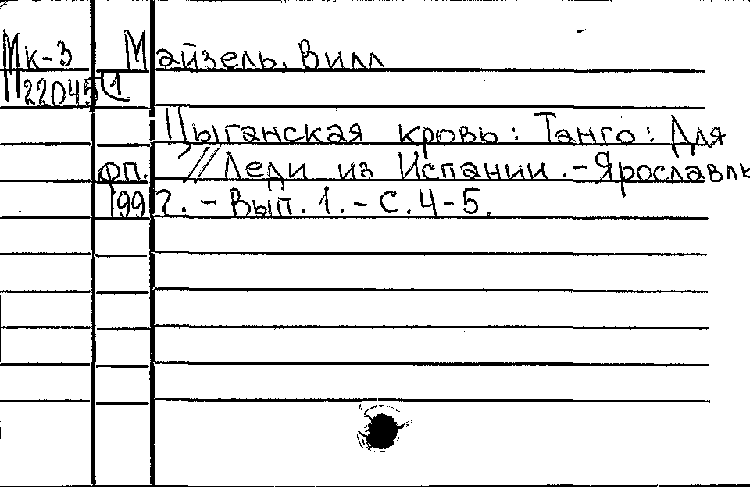 Мк-3 Майзель, Вилл
П22045/1
Цыганская кровь: Танго: Для
фп. // Леди из Испании. - Ярославль
1992. - Вып. 1. - С. 4-5.